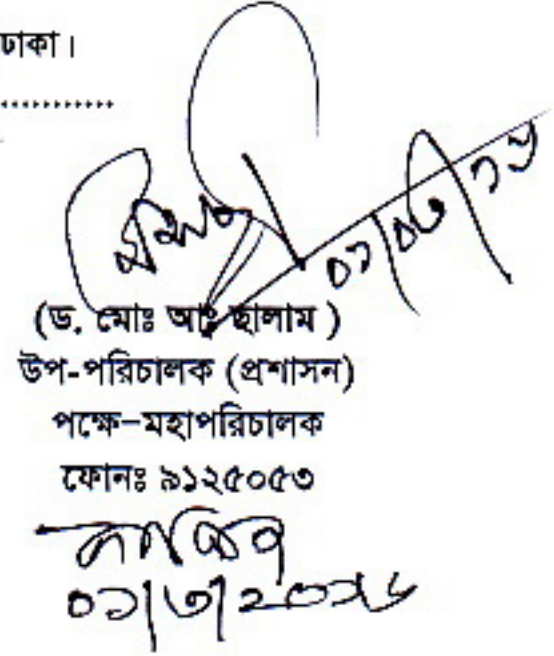 ঢাকা।
....................
০১/০৩/১৬
(ড. মোঃ আঃ ছালাম )
উপ-পরিচালক (প্রশাসন)
পক্ষে-মহাপরিচালক
ফোনঃ ৯১২৫০৫৩
০১/৩/২০১৬